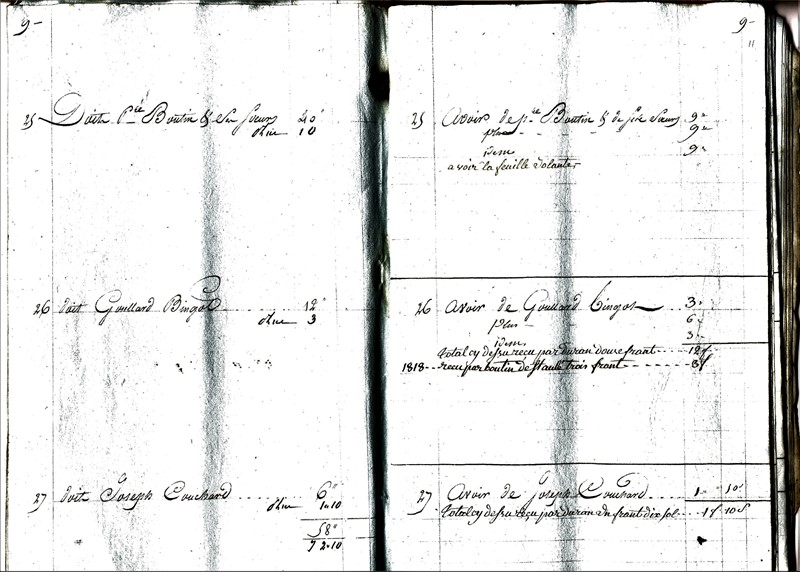 9-
25 Doit Pre Boutin & Ses Sœurs 40"
plus 10
26 doit Goullard Bingot 12"
plus 3
27 doit Joseph Couchard 6"
plus 1"10
58"
72"10
9-
11
25 Avoir de pre Boutin & de ses Sœurs 9"
plus 9"
idem 9"
a voir la feuille volante
26 Avoir de Goullard bingot 3"
plus 6
idem 3"
total cy dessu reçu par duran douse frant 12f
1818-- recu par boutin de trois frant 3f
27 Avoir de Joseph Couchard 1" 10s
total cy dessu reçu par duran un frant dix sol 1f 10s